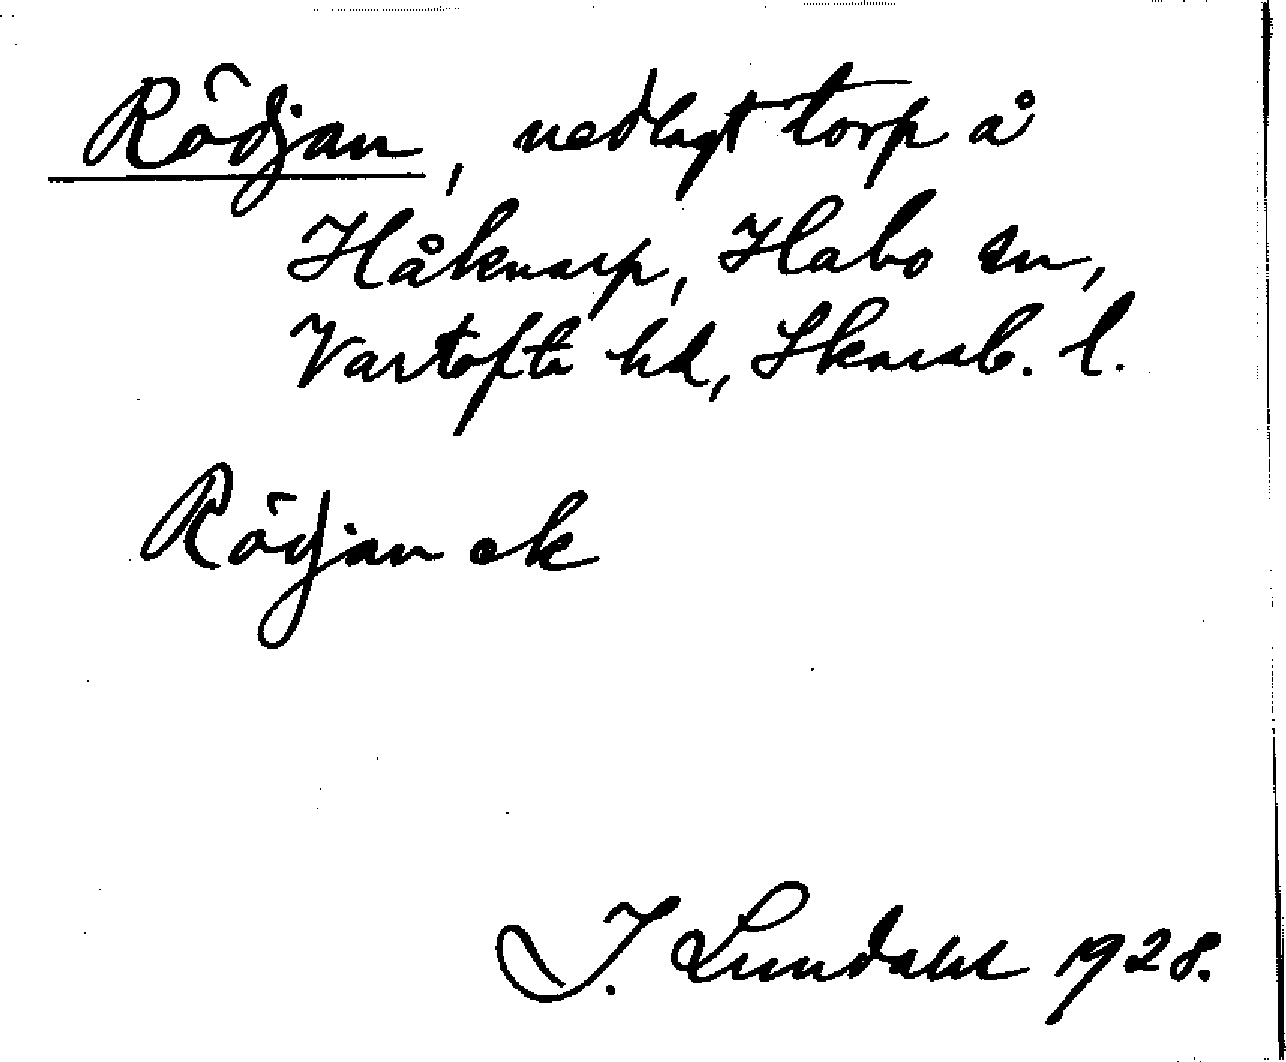 Rödjan, nedlagt torp å
Håknarp, Habo sn,
Vartofta hd, Skarab. l.
Rödjan ek
I. Lundahl 1928.